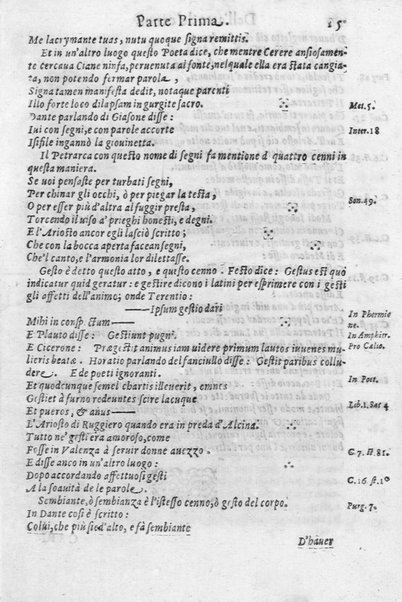 Parte Prima. 15
Me lacrymante tuas, nutu quoque signa remittis.
Et in un'altro luogo questo Poeta dice, che mentre Cerere ansiosamen-
te cercaua Ciane ninfa, peruenuta al fonte, nel quale ella era stata cangia-
ta, non potendo fermar parola,
Signa tamen manifesta dedit, notaque parenti
Illo forte loco dilapsam in gurgite sacro. Met. 5.
Dante parlando di Giasone disse:
Iui con segni, e con parole accorte Infer. 18
Isifile ingannò la giouinetta.
Il Petrarca con questo nome di segni fa mentione di quattro cenni in
questa maniera.
Se voi penaste per turbati segni,
Per chinar gli occhi, ò per piegar la testa, Son. 49.
O per esser più d'altra al fuggir presta,
Torcendo il uiso a' prieghi honesti, e degni.
E l'Ariosto ancor egli lasciò scritto;
Che con la bocca aperta facean segni,
Che'l canto, e l'armonia lor dilettasse.
Gesto è detto questo atto, e questo cenno. Festo dice: Gestus est quò
indicatur quid geratur: e gestire dicono i latini per esprimere con i gesti
gli affetti dell'animo; onde Terentio:
——Ipsum gestio dari In Phormio
Mihi in consp. ctum—— ne.
E Plauto disse: Gestiunt pugni. In Amphitr.
E Cicerone: Præg. stit animus iam uidere primum lautos iuuenes mu- Pro Celio.
lieris beato. Horatio parlando del fanciullo disse: Gestit paribus collu-
dere. E de poeti ignoranti. In Poet.
Et quodcunque semel chartis illeuerit, omnes
Gestiet à furno redeuntes scire lacuque Lib. 1. Sat 4
Et pueros, & anus——
L'Ariosto di Ruggiero quando era in preda d'Alcina.
Tutto ne' gesti era amoroso, come
Fosse in Valenza à seruir donne auezzo. C. 7. st. 81.
E disse anco in un'altro luogo:
Dopo accordando affettuosi gesti C. 16. st. 10
A la soauità de le parole.
Sembiante, ò sembianza è l'istesso cenno, ò gesto del corpo. Purg. 7.
In Dante così è scritto:
Colui, che più sied'alto, e fà sembiante
D'hauer